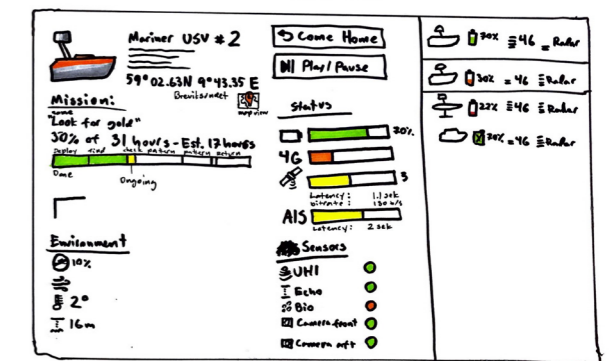 Mariner USV #2
59° 02.63N 9° 43.35 E
Breviksneet
mapview
Mission:
name
"Look for gold"
50% of 31 hours - Est. 17 hours
Deploy find check pattern pattern return
Done
Ongoing
Environment
10%
2°
16m
Come Home
Play/Pause
Status
70%
4G
3
Latency: 1.1 sek
bitrate: 130 k/s
AIS
Latency: 2 sek
Sensors
UHI
Echo
Bio
Camera front
Camera aft
70% 4G Radar
30% 4G Radar
22% 4G Radar
70% 4G Radar